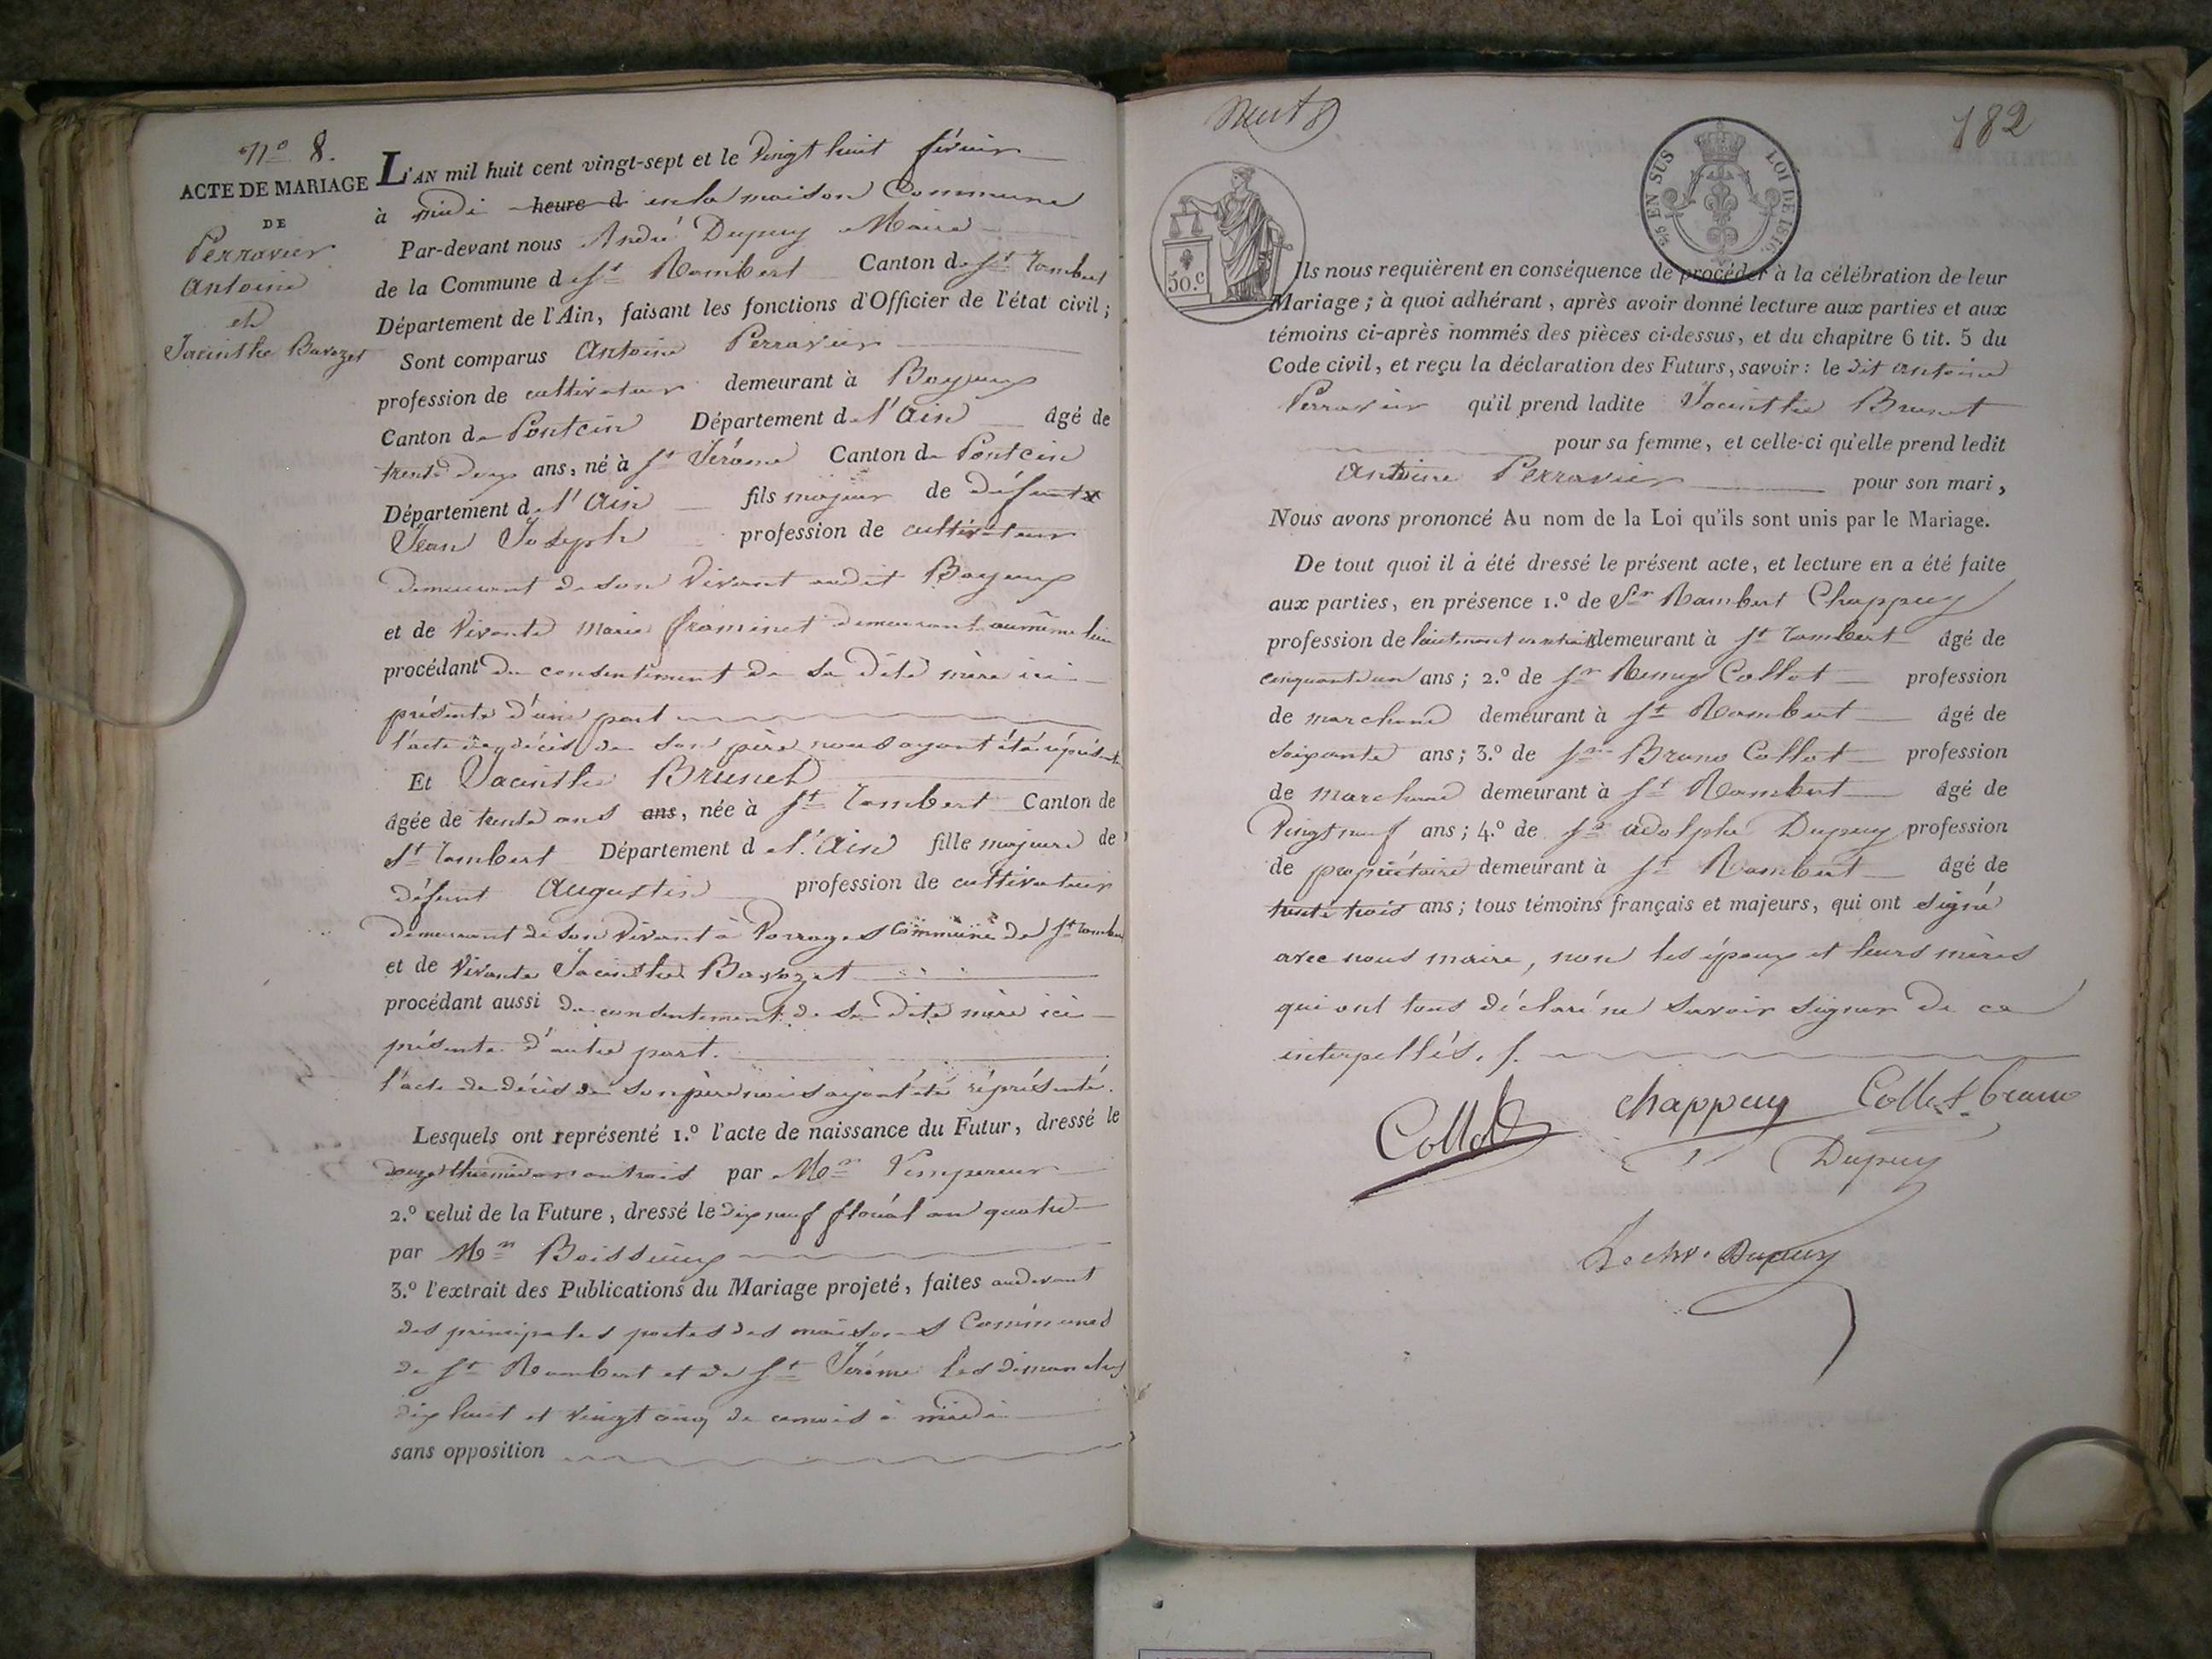 N.º 8.
ACTE DE MARIAGE
DE
Perravier
Antoine
et
Jacinthe Bavozet
L'AN mil huit cent vingt-sept et le Vingt huit février
à midi heure d en la maison Commune
Par-devant nous André Dupuy Maire
de la Commune d St Rambert Canton de St Rambert
Département de l'Ain, faisant les fonctions d'Officier de l'état civil;
Sont comparus Antoine Perravier
profession de cultivateur demeurant à Boyeux
Canton de Pontcin Département de l'Ain âgé de
trente deux ans, né à St Jérôme Canton de Pontcin
Département de l'Ain fils majeur de défunt
Jean Joseph profession de cultivateur
demeurant de son vivant audit Boyeux
et de Vivante Marie framinet demeurant au même lieu
procédant du consentement de sa dite mère ici
présente d'une part
l'acte de décès de son père nous ayant été représenté
Et Jacinthe Brunet
âgée de trente ans ans, née à St Rambert Canton de
St Rambert Département d l'Ain fille majeure de
défunt Augustin profession de cultivateur
demeurant de son vivant à Commune de St Rambert
et de Vivante Jacinthe Bavozet
procédant aussi du consentement de sa dite mère ici
présente d'autre part.
l'acte de décès de son père nous ayant été représenté.
Lesquels ont représenté 1.º l'acte de naissance du Futur, dressé le
douze thermidor an trois par Mr. Vimpereur
2.º celui de la Future, dressé le dix neuf floréal an quatre
par Mr.
3.º l'extrait des Publications du Mariage projeté, faites audevant
des principales portes des maisons Communes
de St Rambert et de St Jérôme les dimanches
dix huit et vingt cinq de ce mois à midi
sans opposition
182
EN SUS LOI DE 1816.
50.c
Ils nous requièrent en conséquence de procéder à la célébration de leur
Mariage; à quoi adhérant, après avoir donné lecture aux parties et aux
témoins ci-après nommés des pièces ci-dessus, et du chapitre 6 tit. 5 du
Code civil, et reçu la déclaration des Futurs, savoir: le dit Antoine
Perravier qu'il prend ladite Jacinthe Brunet
pour sa femme, et celle-ci qu'elle prend ledit
Antoine Perravier pour son mari,
Nous avons prononcé Au nom de la Loi qu'ils sont unis par le Mariage.
De tout quoi il à été dressé le présent acte, et lecture en a été faite
aux parties, en présence 1.º de Sr Rambert Chappuy
profession de lieutenant en retraite demeurant à St Rambert âgé de
cinquante un ans; 2.º de Sr Remy Collot profession
de marchand demeurant à St Rambert âgé de
soixante ans; 3.º de Sr Bruno Collot profession
de marchand demeurant à St Rambert âgé de
Vingt neuf ans; 4.º de Sr Adolphe Dupuy profession
de propriétaire demeurant à St Rambert âgé de
trente trois ans; tous témoins français et majeurs, qui ont signé
avec nous maire, non les époux et leurs mères
qui ont tous déclaré ne savoir signer de ce
interpellés. /.
Collot chappuy Collot bruno
Dupuy
Le chr. Dupuy